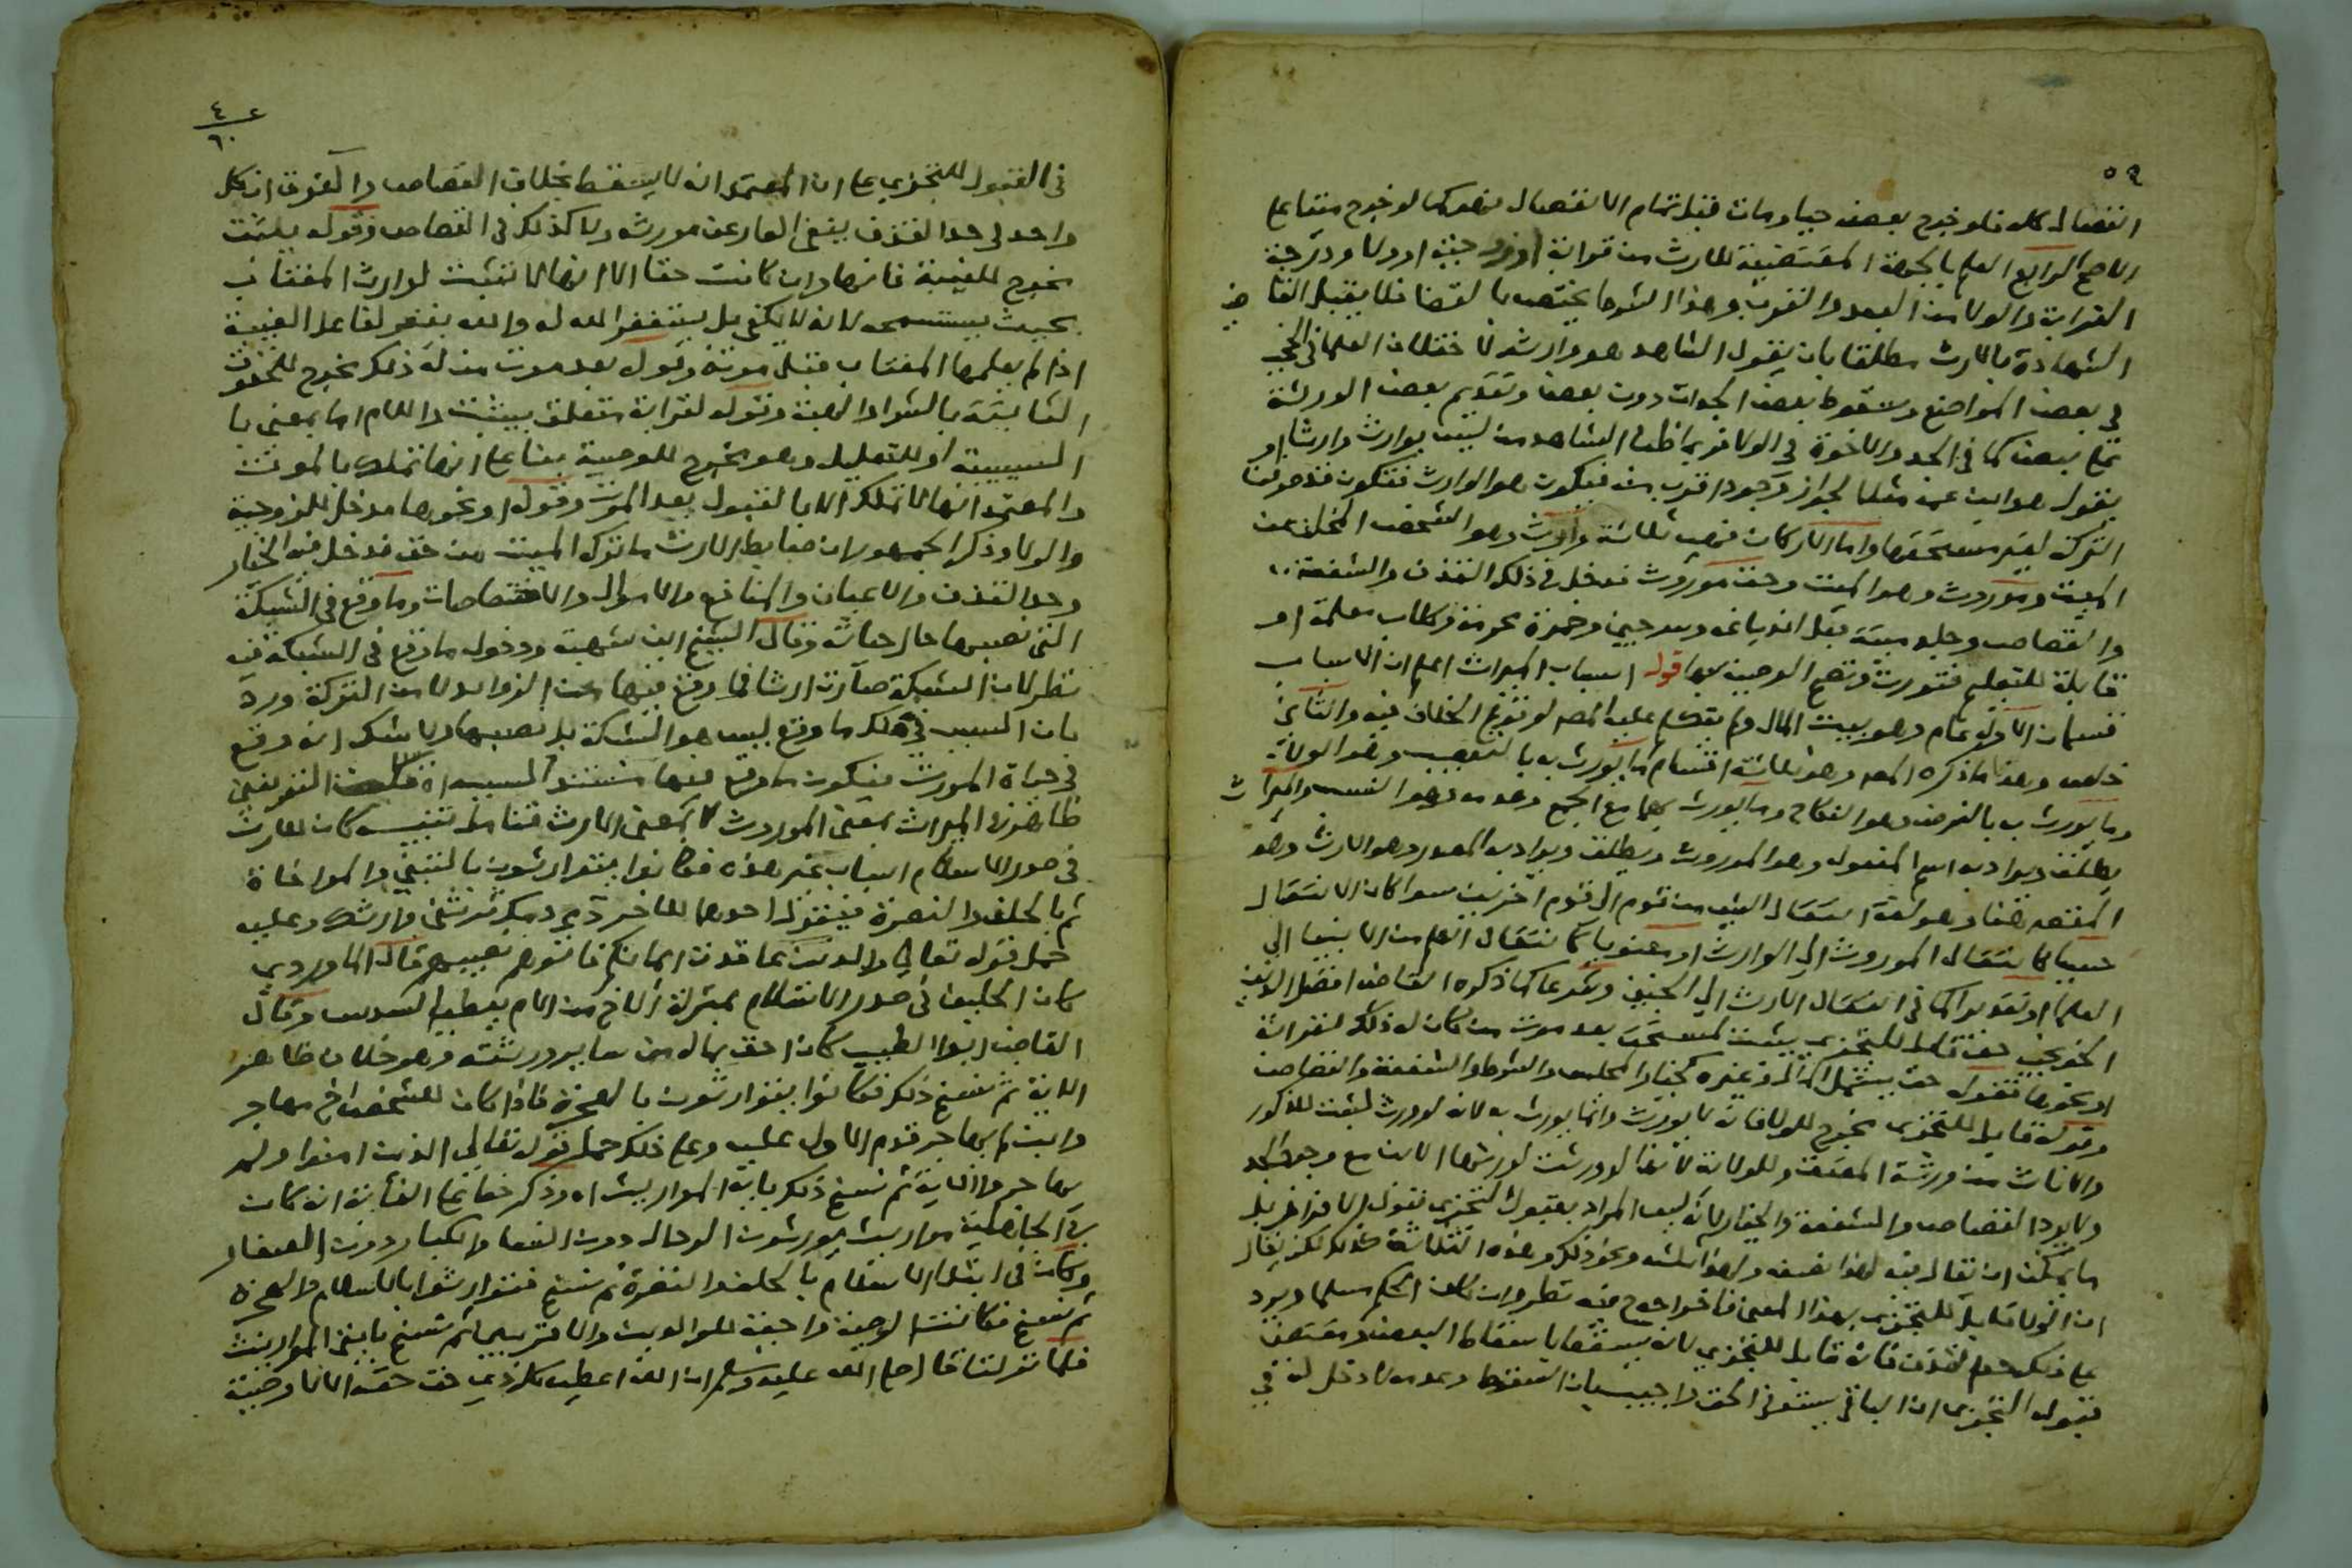 ٥٩
انفصال كله فلو خرج بعضه حيا ومات قبل تمام الانفصال فهو كما لو خرج ميتا على
الاصح الرابع العلم بالجهة المقتضية للارث من قرابة او زوجية او ولا ودرجة
القرابة والولا من البعد والقرب وهذا الشرط يختص بالقضا فلا يقبل القاضي
الشهادة بالارث مطلقا بان يقول الشاهد هو وارثه لاختلاف العلما في الحجب
في بعض المواضع وسقوط بعض الجهات دون بعض وتقديم بعض الورثة
على بعض كما في الجد والاخوة في الولا فربما ظن الشاهد من ليس بوارث وارثا او
يقول هو ابن عمه مثلا لجواز وجود اقرب منه فيكون هو الوارث فتكون قد صرفنا
التركة لغير مستحقها واما الاركان فهي ثلاثة وارث وهو الشخص المخلف عن
الميت وموروث وهو الميت وحق موروث فدخل في ذلك القذف والشفعة
والقصاص وجلد ميتة قبل اندباغه وسرجين وخمرة محترمة وكلاب معلمة او
قابلة للتعليم فتورث وتصح الوصية بها قوله اسباب الميراث اعلم ان الاسباب
قسمان الاول عام وهو بيت المال ولم يتكلم عليه المص لوقوع الخلاف فيه والثاني
خاص وهذا ما ذكره المص وهو ثلاثة اقسام ما يورث به بالتعصيب وهو الولا
وما يورث به بالفرض وهو النكاح وما يورث بهما مع الجمع وعدمه وهو النسب والميراث
يطلق ويراد به اسم المفعول وهو الموروث ويطلق ويراد به المصدر وهو الارث وهو
المقصود هنا وهو لغة انتقال الشي من قوم الى قوم اخرين سوا كان الانتقال
حسيا كانتقال الموروث الى الوارث او معنويا كانتقال العلم من الانبيا الى
العلما او تقديرا كما في انتقال الارث الى الجنين وشرعا كما ذكره القاضي افضل الدين
الخونجي حق قابل للتجزي يثبت لمستحق بعد موت من كان له ذلك لقرابة
او نحوها فقوله حق يشمل المال وغيره كخيار المجلس والشرط والشفعة والقصاص
وقوله قابل للتجزي مخرج للولا فانه لا يورث وانما يورث به لانه لو ورث لثبت للذكور
والاناث من ورثة المعتق وللولاية لانها لو ورثت لورثها الابن مع وجود الجد
ولا يرد القصاص والشفعة والخيار لانه ليس المراد بقبول التجزي قبول الافراز بل
ما يمكن ان يقال فيه لهذا نصفه ولهذا ثلثه ونحو ذلك وهذه الثلاثة كذلك لكن يقال
ان الولا قابل للتجزي بهذا المعنى فاخراجه فيه نظر وان كان الحكم مسلما ويرد
على ذلك حد القذف فانه قابل للتجزي لانه يسقط باسقاط البعض ومقتضى
قبول التجزي ان الباقي يستوفي الحق واجيب بان السقوط وعدمه لا دخل له في
٤
٦٠
في القبول للتجزي على ان المعتمد انه لا يسقط بخلاف القصاص والفرق ان كل
واحد في حد القذف ينفي العار عن مورثه ولا كذلك في القصاص وقوله يثبت
مخرج للغيبة فانها وان كانت حقا الا انها لا تثبت لوارث المغتاب
بحيث يستسمحه لانه لا يكفي بل يستغفر الله له والله يغفر لفاعل الغيبة
اذا لم يعلمها المغتاب قبل موته وقوله بعد موت من له ذلك مخرج للحقوق
الثابتة بالشراء والهبة وقوله لقرابة متعلق بيثبت واللام اما بمعنى با
السببية او للتعليل وهو مخرج للوصية بنا على انها تملك بالموت
والمعتمد انها لا تملك الا بالقبول بعد الموت وقوله او نحوها مدخل للزوجية
والولا وذكر الجمهور ان ضابط الارث ما تركه الميت من حق فدخل فيه الخيار
وحد القذف والاعيان والمنافع والاموال والاختصاصات وما وقع في الشبكة
التي نصبها حال حياته وقال الشيخ ابن شهبة ودخول ما وقع في الشبكة فيه
نظر لان الشبكة صارت ارثا فما وقع فيها من الزوايد لا من التركة ورد
بان السبب في ملك ما وقع ليس هو الشبكة بل نصبها ولا شك انه وقع
في حياة المورث فيكون ما وقع فيها مستندا لسببه اه فكان التعريف
ظاهر في الميراث بمعنى الموروث لا بمعنى الارث فتامل تنبيه كان للارث
في صدر الاسلام اسباب غير هذه فكانوا يتوارثون بالتبني والمواخاة
ثم بالحلف والنصرة فيقول احدهما للاخر دمي دمك ترثني وارثك وعليه
حمل قوله تعالى والذين عاقدت ايمانكم فاتوهم نصيبهم قال الماوردي
كان الحليف في صدر الاسلام بمنزلة الاخ من الام يعطيه السدس وقال
القاضي ابو الطيب كان احق بماله من ساير ورثته وهو خلاف ظاهر
الاية ثم نسخ ذلك فكانوا يتوارثون بالهجرة فاذا كان للشخص اخ مهاجر
وابن لم يهاجر قدم الاول عليه وعلى ذلك حمل قوله تعالى الذين امنوا ولم
يهاجروا الاية ثم نسخ ذلك باية المواريث اه وذكر خفاجي الغاية انه كان
في الجاهلية مواريث يورثون الرجال دون النسا والكبار دون الصغار
وكان في ابتدا الاسلام بالحلف والنصرة ثم نسخ فتوارثوا بالاسلام والهجرة
ثم نسخ فكانت الوصية واجبة للوالدين والاقربين ثم نسخ بايتي المواريث
فلما نزلتا قال صلى الله عليه وسلم ان الله اعطى كل ذي حق حقه الا لا وصية